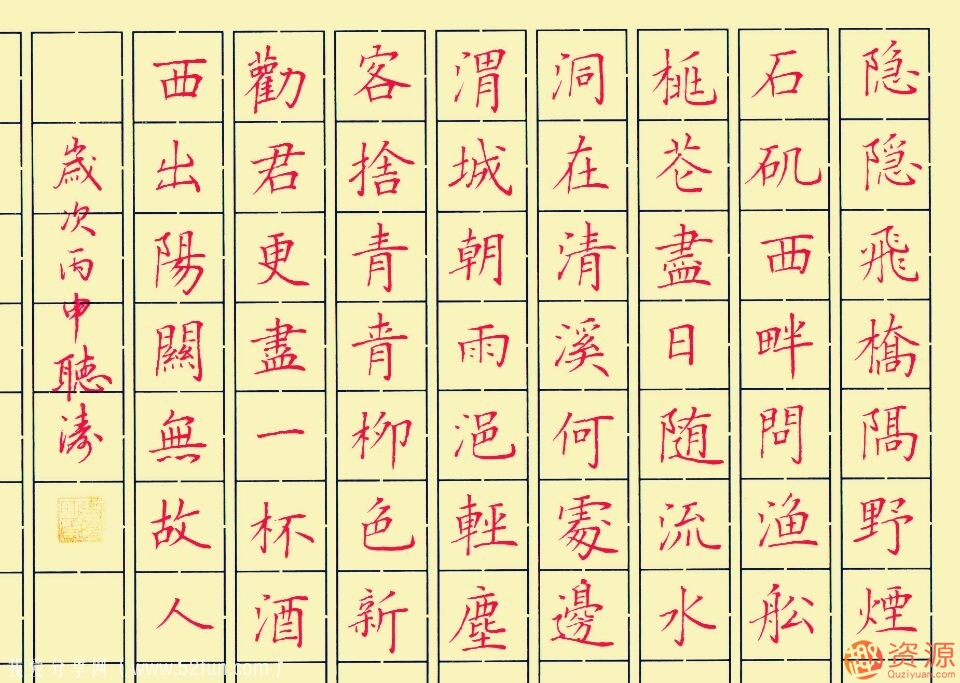 隐隐飛橋隔野煙
石矶西畔問渔舩
桃花盡日随流水
洞在清溪何處邊
渭城朝雨浥輕塵
客捨青青柳色新
勸君更盡一杯酒
西出陽關無故人
歲次丙申聽濤
www.52fun.com
趣资源
Quziyuan.com